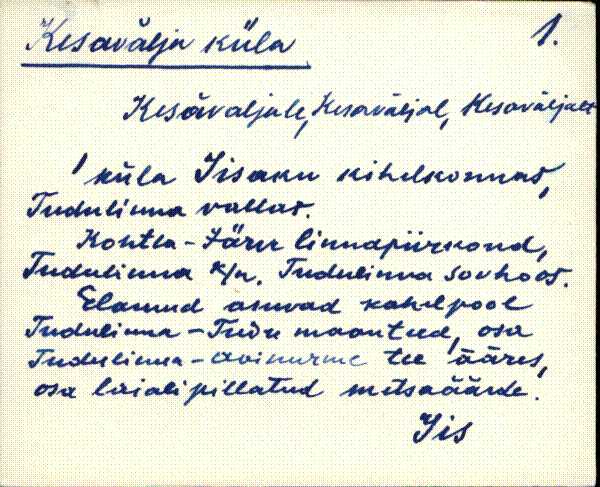 Kesavälja küla 1.
Kesäväljale, Kesaväljal, Kesaväljalt
küla Iisaku kihelkonnas,
Tudulinna vallas.
Kohtla-Järve linnapiirkond,
Tudulinna k/n. Tudulinna sovhoos.
Elamud asuvad kahelpool
Tudulinna-Tudu maanteed, osa
Tudulinna-Avinurme tee ääres,
osa laialipillatud metsaäärde.
Iis